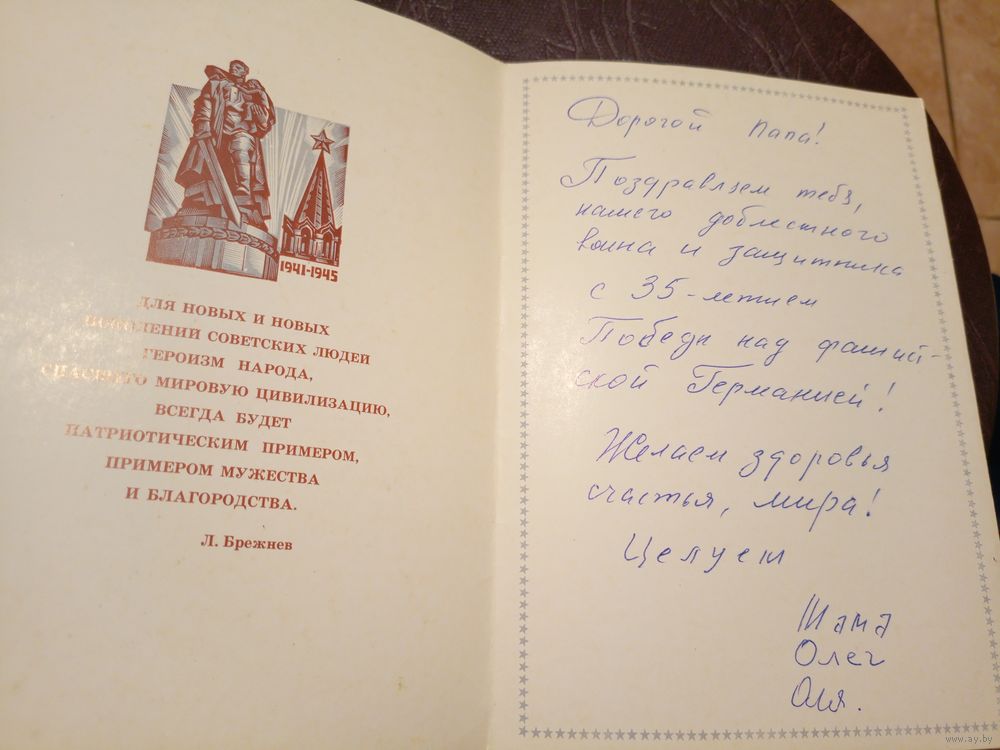 1941-1945
ДЛЯ НОВЫХ И НОВЫХ
ПОКОЛЕНИЙ СОВЕТСКИХ ЛЮДЕЙ
ГЕРОИЗМ НАРОДА,
СПАСШЕГО МИРОВУЮ ЦИВИЛИЗАЦИЮ,
ВСЕГДА БУДЕТ
ПАТРИОТИЧЕСКИМ ПРИМЕРОМ,
ПРИМЕРОМ МУЖЕСТВА
И БЛАГОРОДСТВА.
Л. Брежнев
Дорогой папа!
Поздравляем тебя,
нашего доблестного
воина и защитника
с 35-летием
Победы над фашист-
ской Германией!
Желаем здоровья
счастья, мира!
Целуем
Мама
Олег
Оля.
www.ay.by